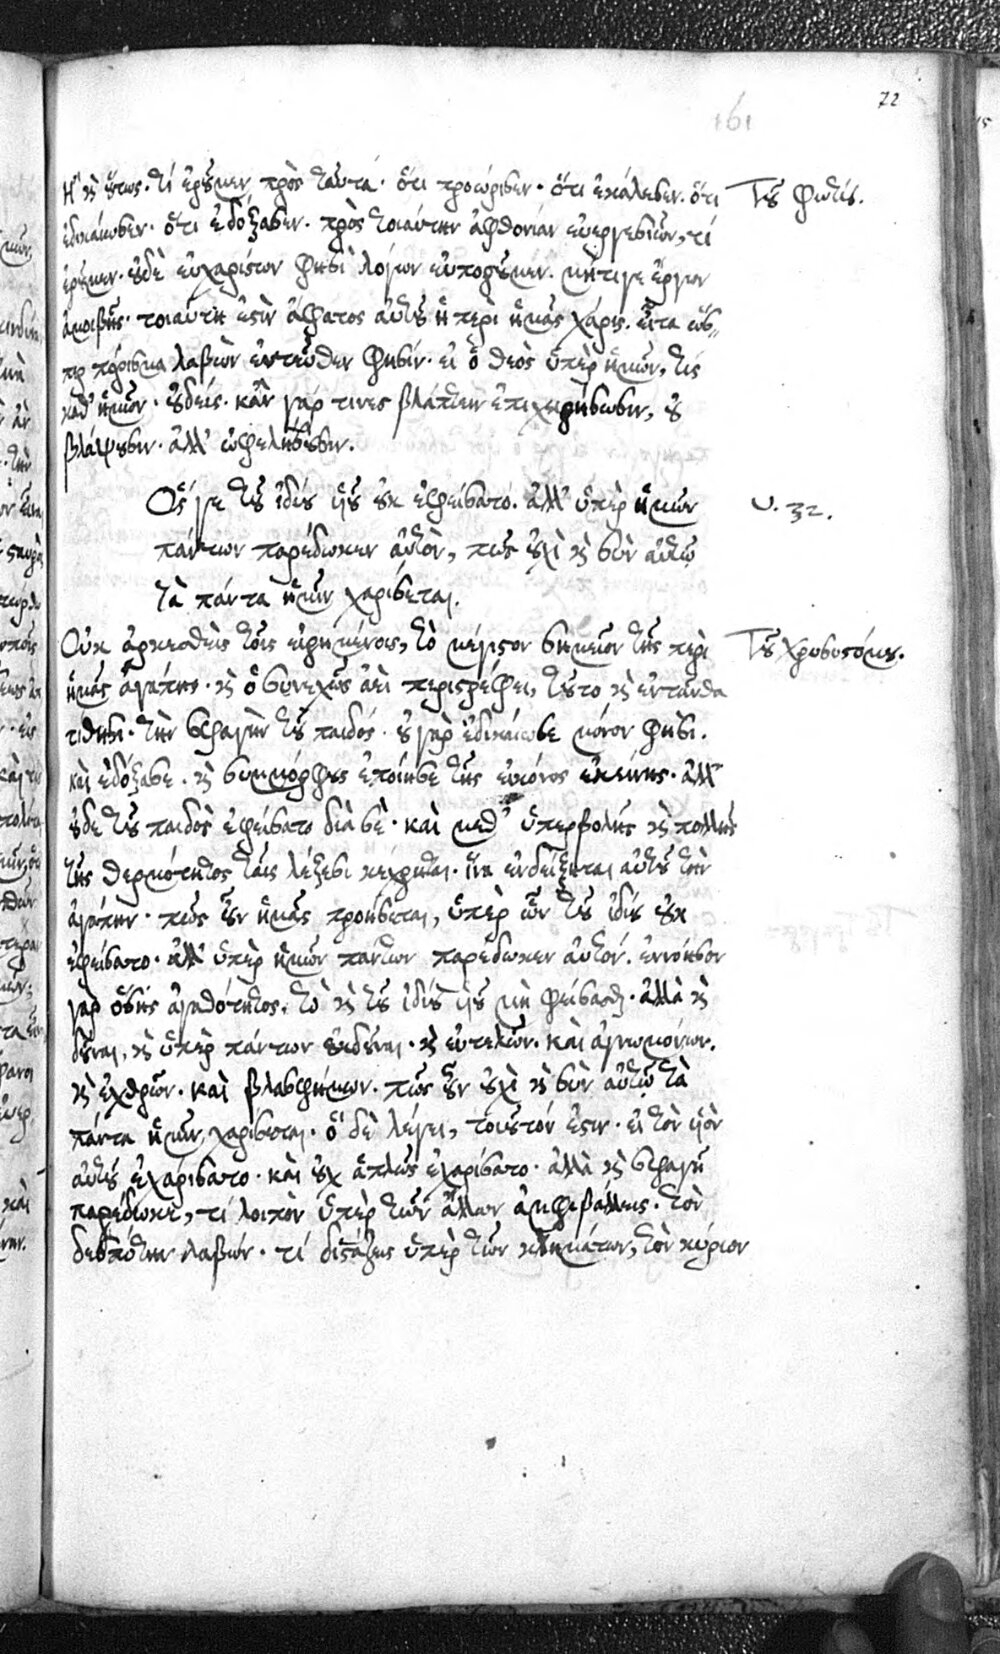 72
161
Ἢ καὶ οὕτως· τί ἐροῦμεν πρὸς ταῦτα· ὅτι προώρισεν· ὅτι ἐκάλεσεν· ὅτι
Τοῦ Φωτίου.
ἐδικαίωσεν· ὅτι ἐδόξασεν· πρὸς τοιαύτην ἀφθονίαν εὐεργεσιῶν, τί
ἐροῦμεν· οὐδὲ εὐχαρίστων φησὶ λόγων εὐποροῦμεν· μήτιγε ἔργων
ἀμοιβῆς· τοιαύτη ἐστὶν ἄφατος αὐτοῦ ἡ περὶ ἡμᾶς χάρις. εἶτα ὥσ-
περ πόρισμα λαβὼν ἐντεῦθεν φησίν· εἰ ὁ θεὸς ὑπὲρ ἡμῶν, τίς
καθ' ἡμῶν· οὐδείς· κἂν γάρ τινες βλάπτειν ἐπιχειρήσωσιν, οὐ
βλάψουσιν· ἀλλ' ὠφελήσουσιν.
Ὅς γε τοῦ ἰδίου υἱοῦ οὐκ ἐφείσατο. ἀλλ' ὑπὲρ ἡμῶν
υ. 32.
πάντων παρέδωκεν αὐτὸν, πῶς οὐχὶ καὶ σὺν αὐτῷ
τὰ πάντα ἡμῖν χαρίσεται.
Οὐκ ἀρκεσθεὶς τοῖς εἰρημένοις, τὸ μέγιστον σημεῖον τῆς περὶ
Τοῦ Χρυσοστόμου.
ἡμᾶς ἀγάπης· καὶ ὃ συνεχῶς ἀεὶ περιστρέφει, τοῦτο καὶ ἐνταῦθα
τίθησι· τὴν σφαγὴν τοῦ παιδός· οὐ γὰρ ἐδικαίωσε μόνον φησι.
καὶ ἐδόξασε· καὶ συμμόρφους ἐποίησε τῆς εἰκόνος ἐκείνης· ἀλλ'
οὐδε τοῦ παιδὸς ἐφείσατο διὰ σὲ· καὶ μεθ' ὑπερβολῆς καὶ πολλῆς
τῆς θερμότητος ταῖς λέξεσι κέχρηται· ἵνα ἐνδείξηται αὐτοῦ τὴν
ἀγάπην· πῶς οὖν ἡμᾶς προήσεται, ὑπὲρ ὧν τοῦ ἰδίου οὐκ
ἐφείσατο· ἀλλ' ὑπὲρ ἡμῶν πάντων παρέδωκεν αὐτόν. ἐννόησον
γὰρ ὅσης ἀγαθότητος, τὸ καὶ τοῦ ἰδίου υἱοῦ μὴ φείσασθαι· ἀλλὰ καὶ
δοῦναι, καὶ ὑπὲρ πάντων ἐκδοῦναι· καὶ εὐτελῶν· καὶ ἀγνωμόνων.
καὶ ἐχθρῶν· καὶ βλασφήμων. πῶς οὖν οὐχὶ καὶ σὺν αὐτῷ τὰ
πάντα ἡμῖν χαρίσεται· ὃ δὲ λέγει, τοιοῦτόν ἐστιν· εἰ τὸν υἱὸν
αὐτοῦ ἐχαρίσατο· καὶ οὐχ ἁπλῶς ἐχαρίσατο· ἀλλὰ καὶ σφαγῇ
παρέδωκε, τί λοιπὸν ὑπὲρ τῶν ἄλλων ἀμφιβάλλεις· τὸν
δεσπότην λαβών· τί διστάζεις ὑπὲρ τῶν κτημάτων, τὸν κύριον